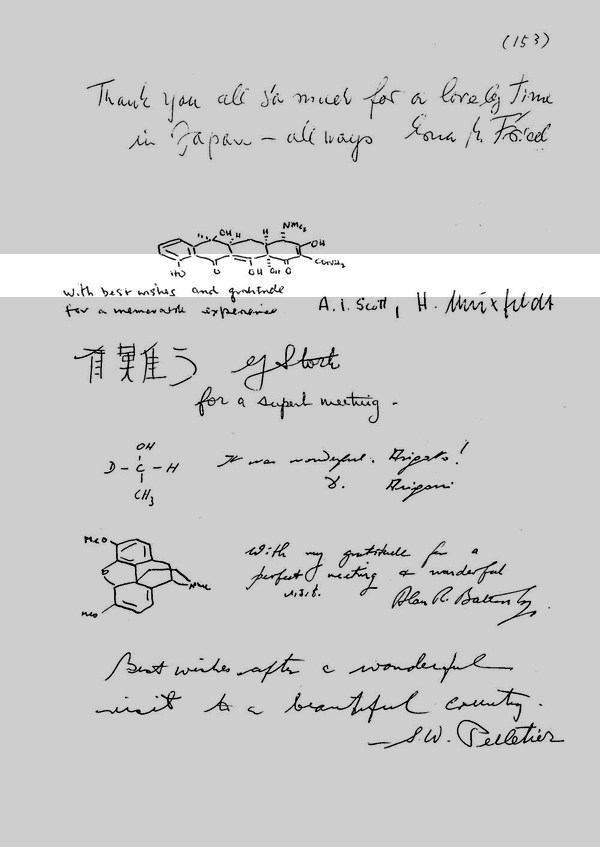 (153)
Thank you all so much for a lovely time
in Japan - all ways
OH H H NMe2
OH
HO O OH OH O CONH2
with best wishes and gratitude
for a memorable experience A. I. Scott, H.
有難う G Stork
for a superb meeting -
OH
D - C - H
CH3
It was wonderful. Arigato!
D. Arigoni
MeO
O
NMe
MeO
With my gratitude for a
perfect meeting & wonderful
visit. Alan R. Battersby.
Best wishes after a wonderful
visit to a beautiful country.
- S.W. Pelletier